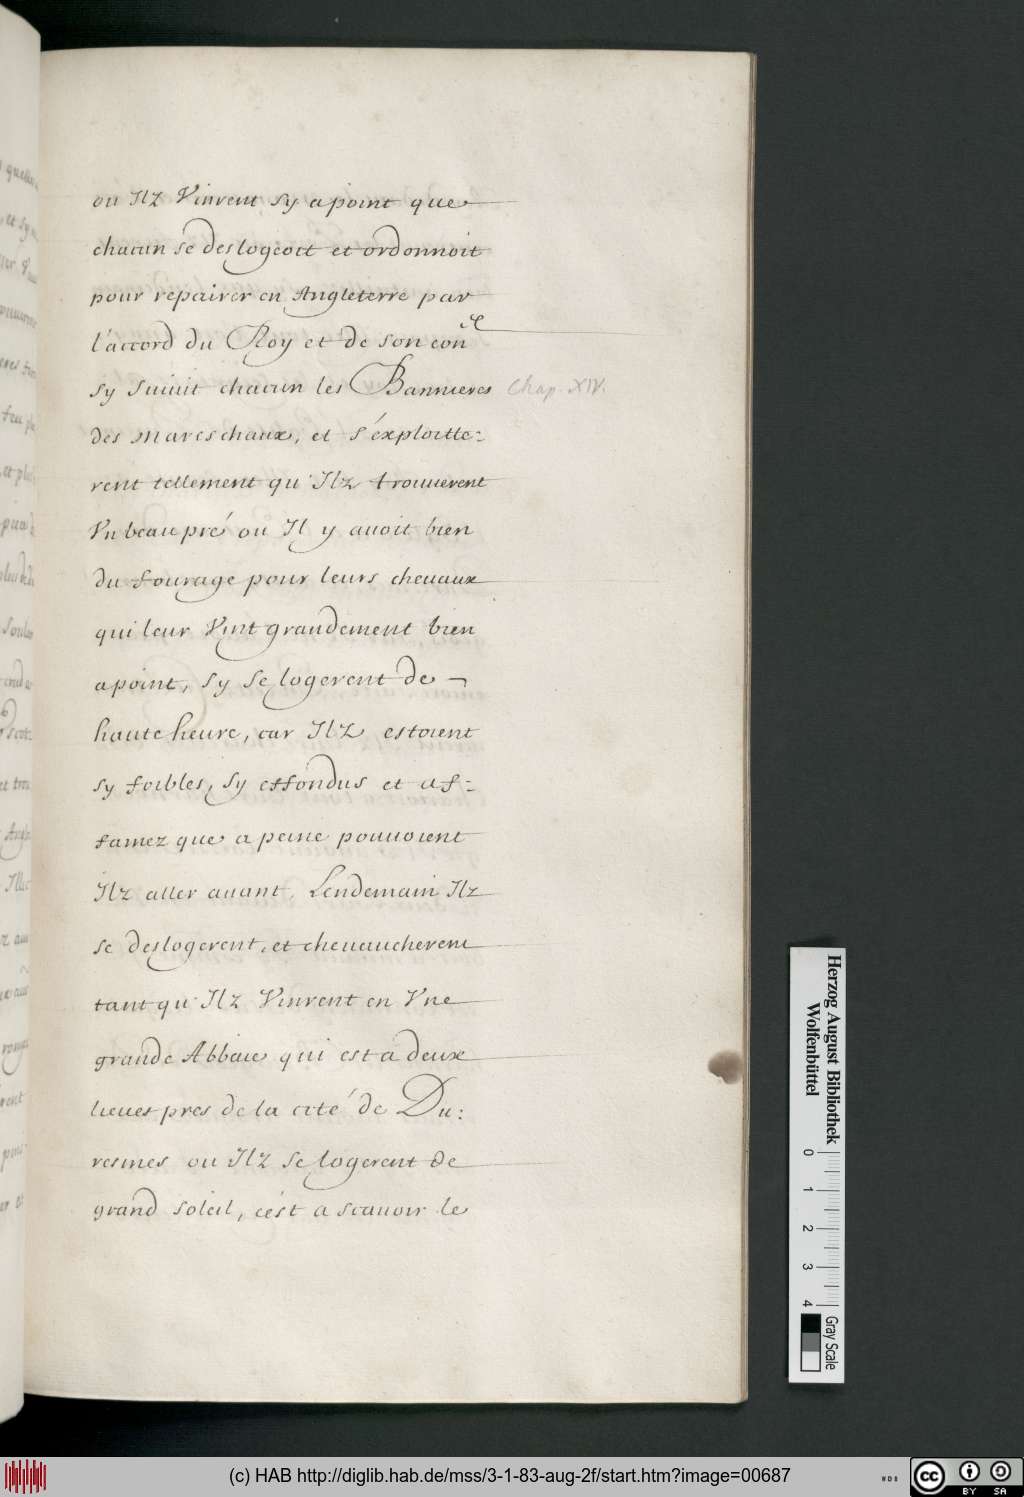 ou Ilz Vinrent sy apoint que
chacun se deslogeoit et ordonnoit
pour repairer en Angleterre par
l'accord du Roy et de son con
sy suiuit chacun les Bannieres Chap. XIV.
des mareschaux, et s'exploitte:
rent tellement qu'Ilz trouuerent
Vn beau pré ou Il y auoit bien
du fourage pour leurs cheuaux
qui leur Vint grandement bien
apoint, sy se logerent de
haute heure, car Ilz estoient
sy foibles, sy effondus et af:
famez que a peine pouuoient
Ilz aller auant, Lendemain Ilz
se deslogerent, et cheuaucherent
tant qu'Ilz Vinrent en Vne
grande Abbaie qui est a deux
lieues pres de la cité de Du:
resmes ou Ilz se logerent de
grand soleil, c'est a scauoir le
Herzog August Bibliothek
Wolfenbüttel
0 1 2 3 4
Gray Scale
(c) HAB http://diglib.hab.de/mss/3-1-83-aug-2f/start.htm?image=00687
cc BY SA